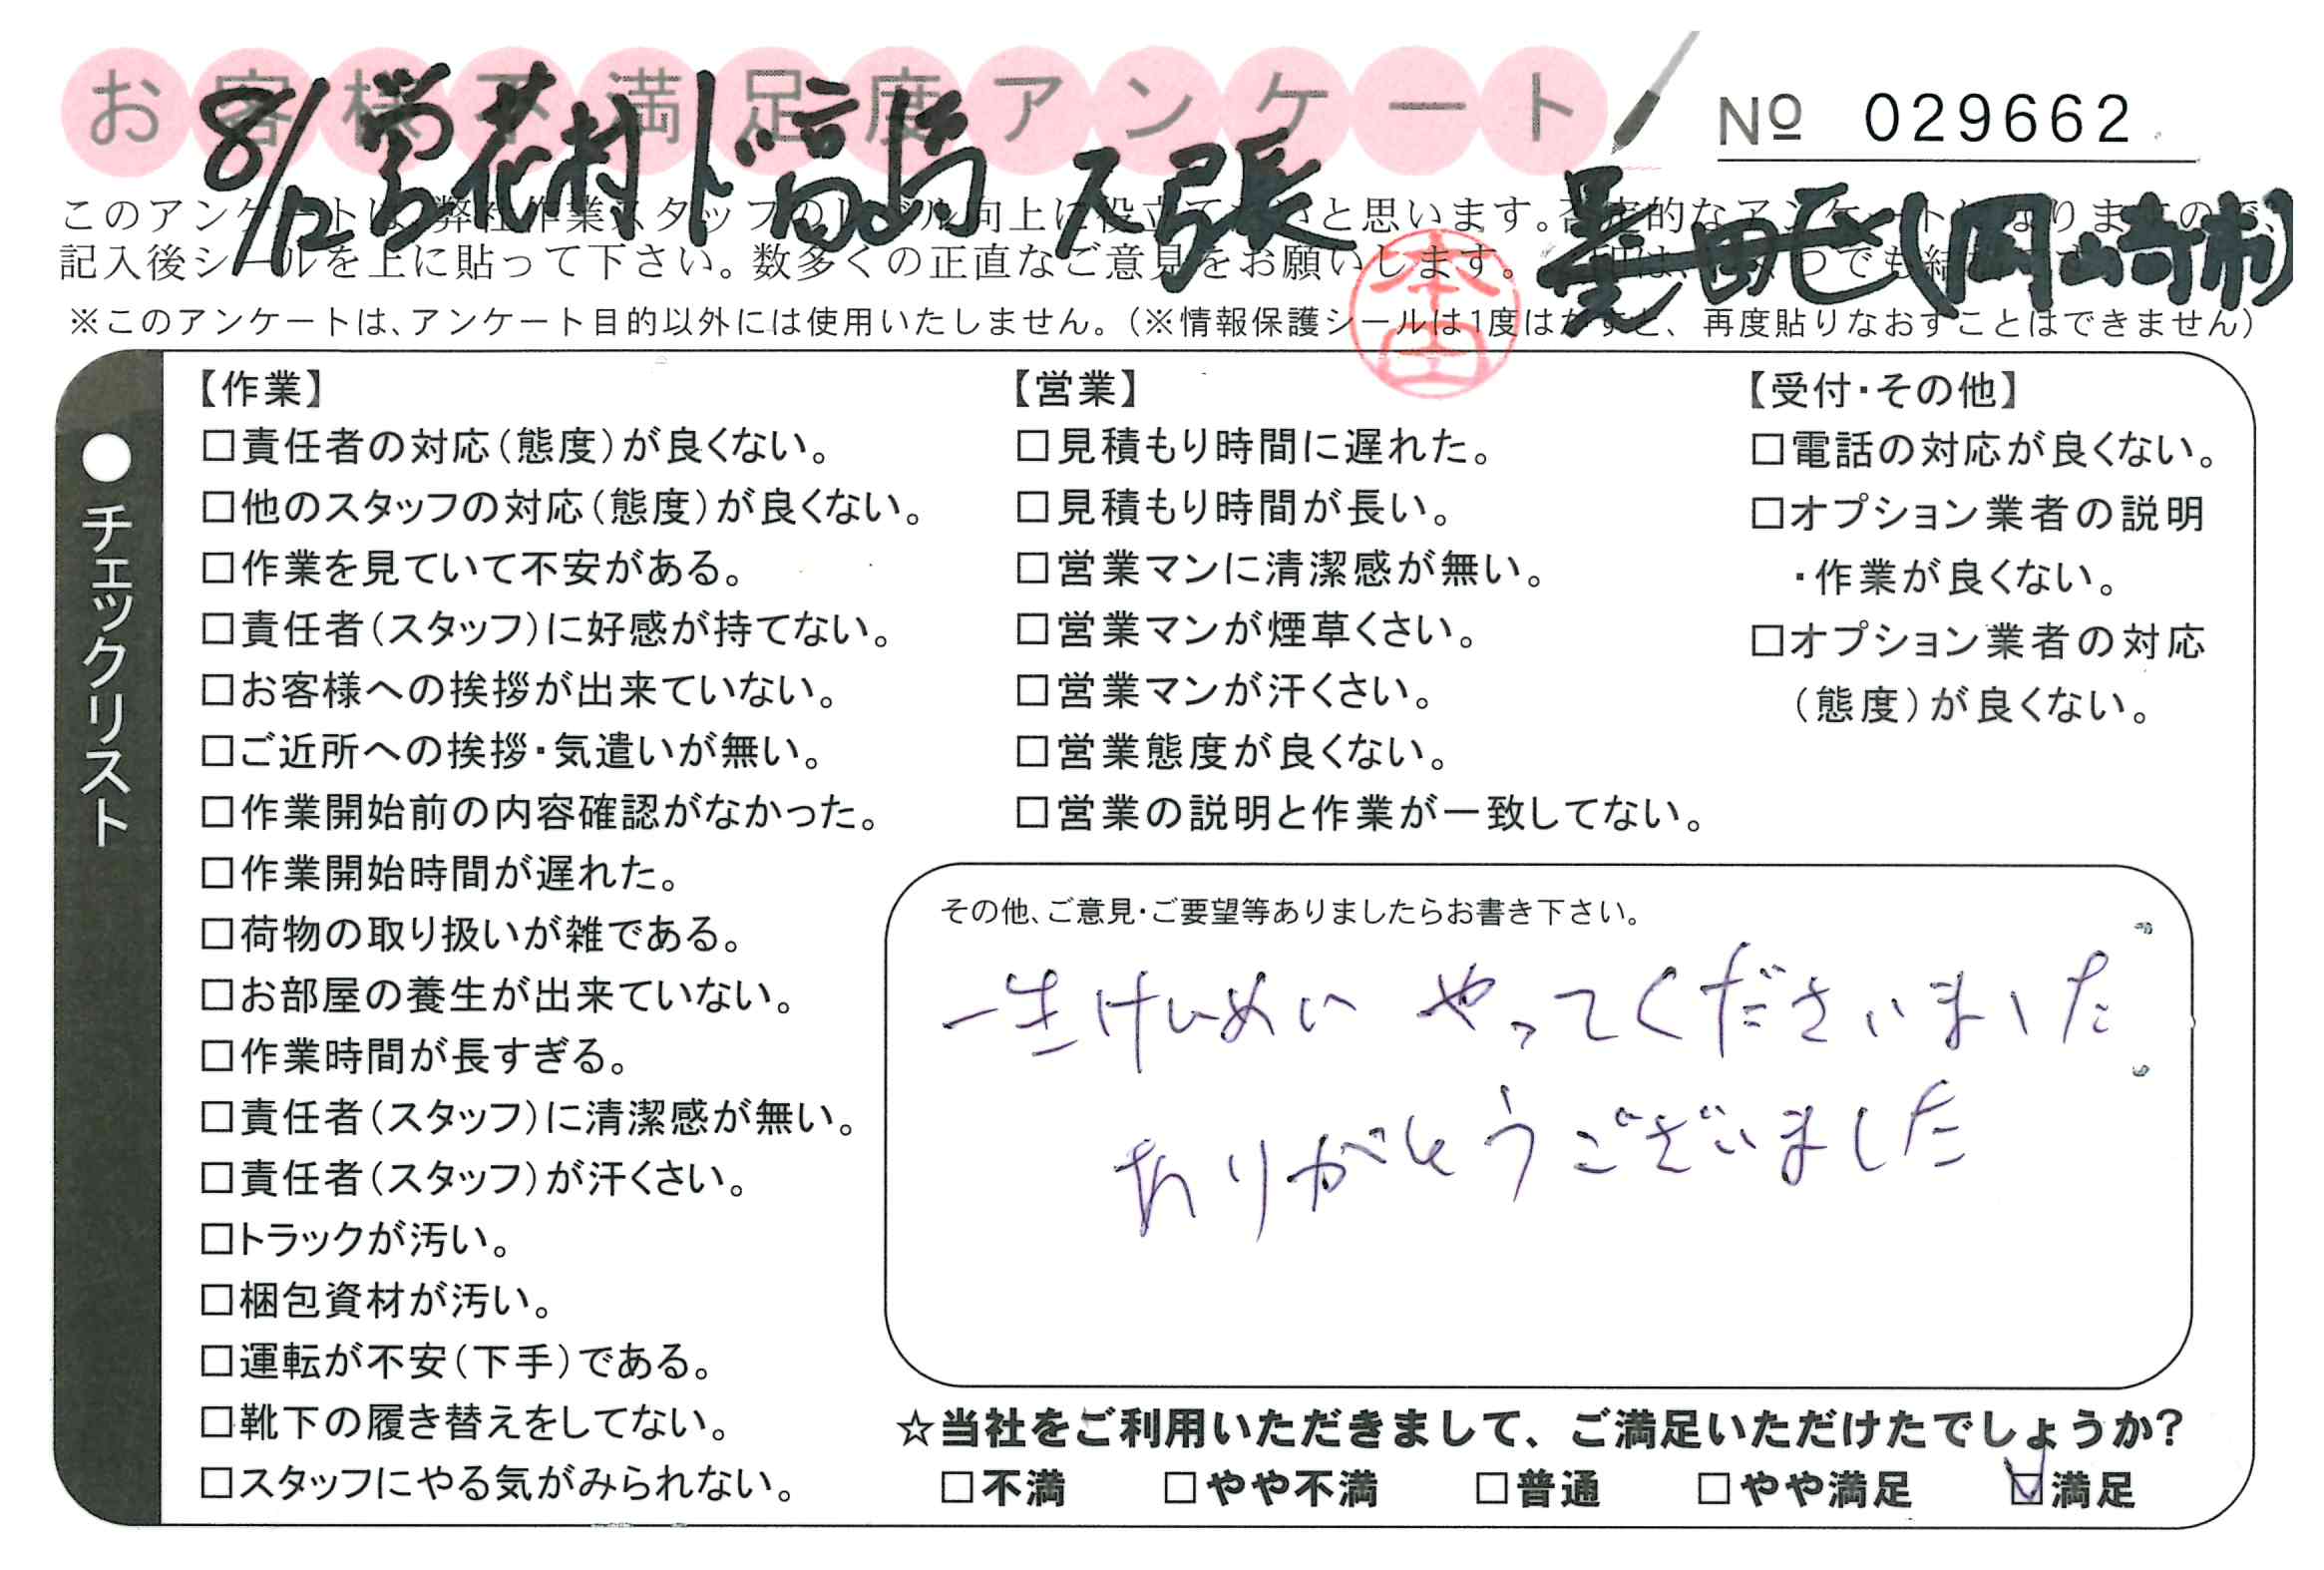 お客様不満足度アンケート
№ 029662
8/12
(岡崎市)
このアンケートは、弊社作業スタッフの
向上に役立
と思います。否定的なアンケート
記入後シールを上に貼って下さい。数多くの正直なご意見をお願いします。
※このアンケートは、アンケート目的以外には使用いたしません。(※情報保護シールは1度はがすと、再度貼りなおすことはできません)
本田
●チェックリスト
【作業】
□責任者の対応(態度)が良くない。
□他のスタッフの対応(態度)が良くない。
□作業を見ていて不安がある。
□責任者(スタッフ)に好感が持てない。
□お客様への挨拶が出来ていない。
□ご近所への挨拶・気遣いが無い。
□作業開始前の内容確認がなかった。
□作業開始時間が遅れた。
□荷物の取り扱いが雑である。
□お部屋の養生が出来ていない。
□作業時間が長すぎる。
□責任者(スタッフ)に清潔感が無い。
□責任者(スタッフ)が汗くさい。
□トラックが汚い。
□梱包資材が汚い。
□運転が不安(下手)である。
□靴下の履き替えをしてない。
□スタッフにやる気がみられない。
【営業】
□見積もり時間に遅れた。
□見積もり時間が長い。
□営業マンに清潔感が無い。
□営業マンが煙草くさい。
□営業マンが汗くさい。
□営業態度が良くない。
□営業の説明と作業が一致してない。
【受付・その他】
□電話の対応が良くない。
□オプション業者の説明
・作業が良くない。
□オプション業者の対応
(態度)が良くない。
その他、ご意見・ご要望等ありましたらお書き下さい。
一生けんめい やってくださいました
ありがとうございました
☆当社をご利用いただきまして、ご満足いただけたでしょうか?
□不満 □やや不満 □普通 □やや満足 ☑満足